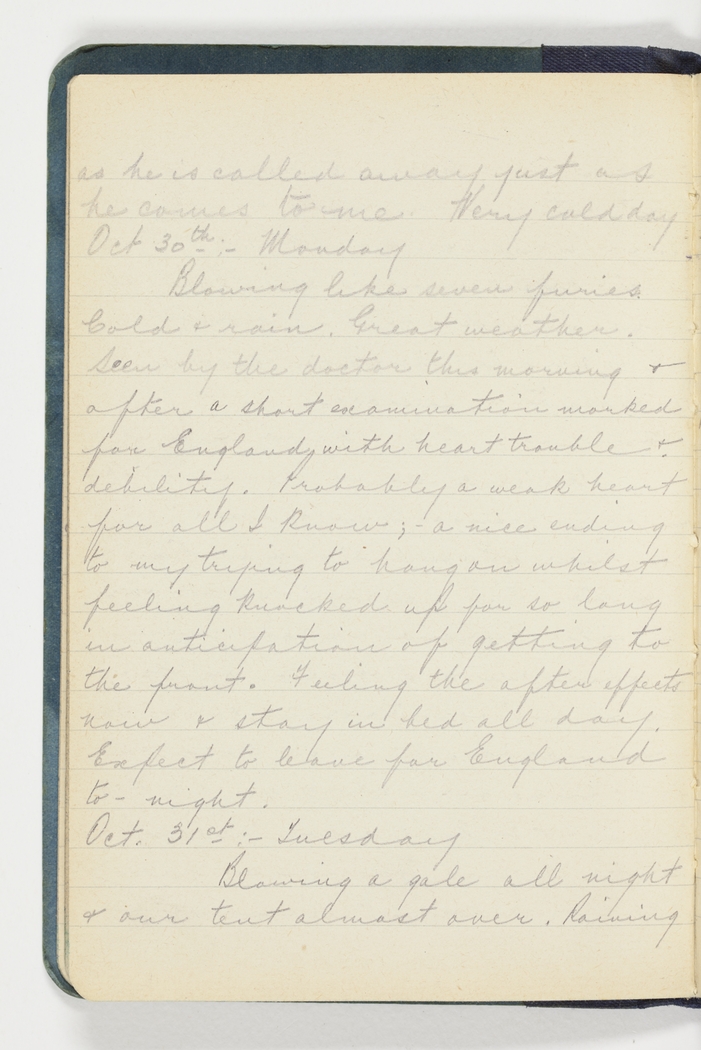 as he is called away just as
he comes to me. Very cold day.
Oct 30th:- Monday
Blowing like seven furies.
Cold & rain. Great weather.
Seen by the doctor this morning &
after a short examination marked
for England, with heart trouble &
debility. Probably a weak heart
for all I know; - a nice ending
to my trying to hang on whilst
feeling knocked up for so long
in anticipation of getting to
the front. Feeling the after effects
now & stay in bed all day.
Expect to leave for England
to-night.
Oct. 31st:- Tuesday
Blowing a gale all night
& our tent almost over. Raining